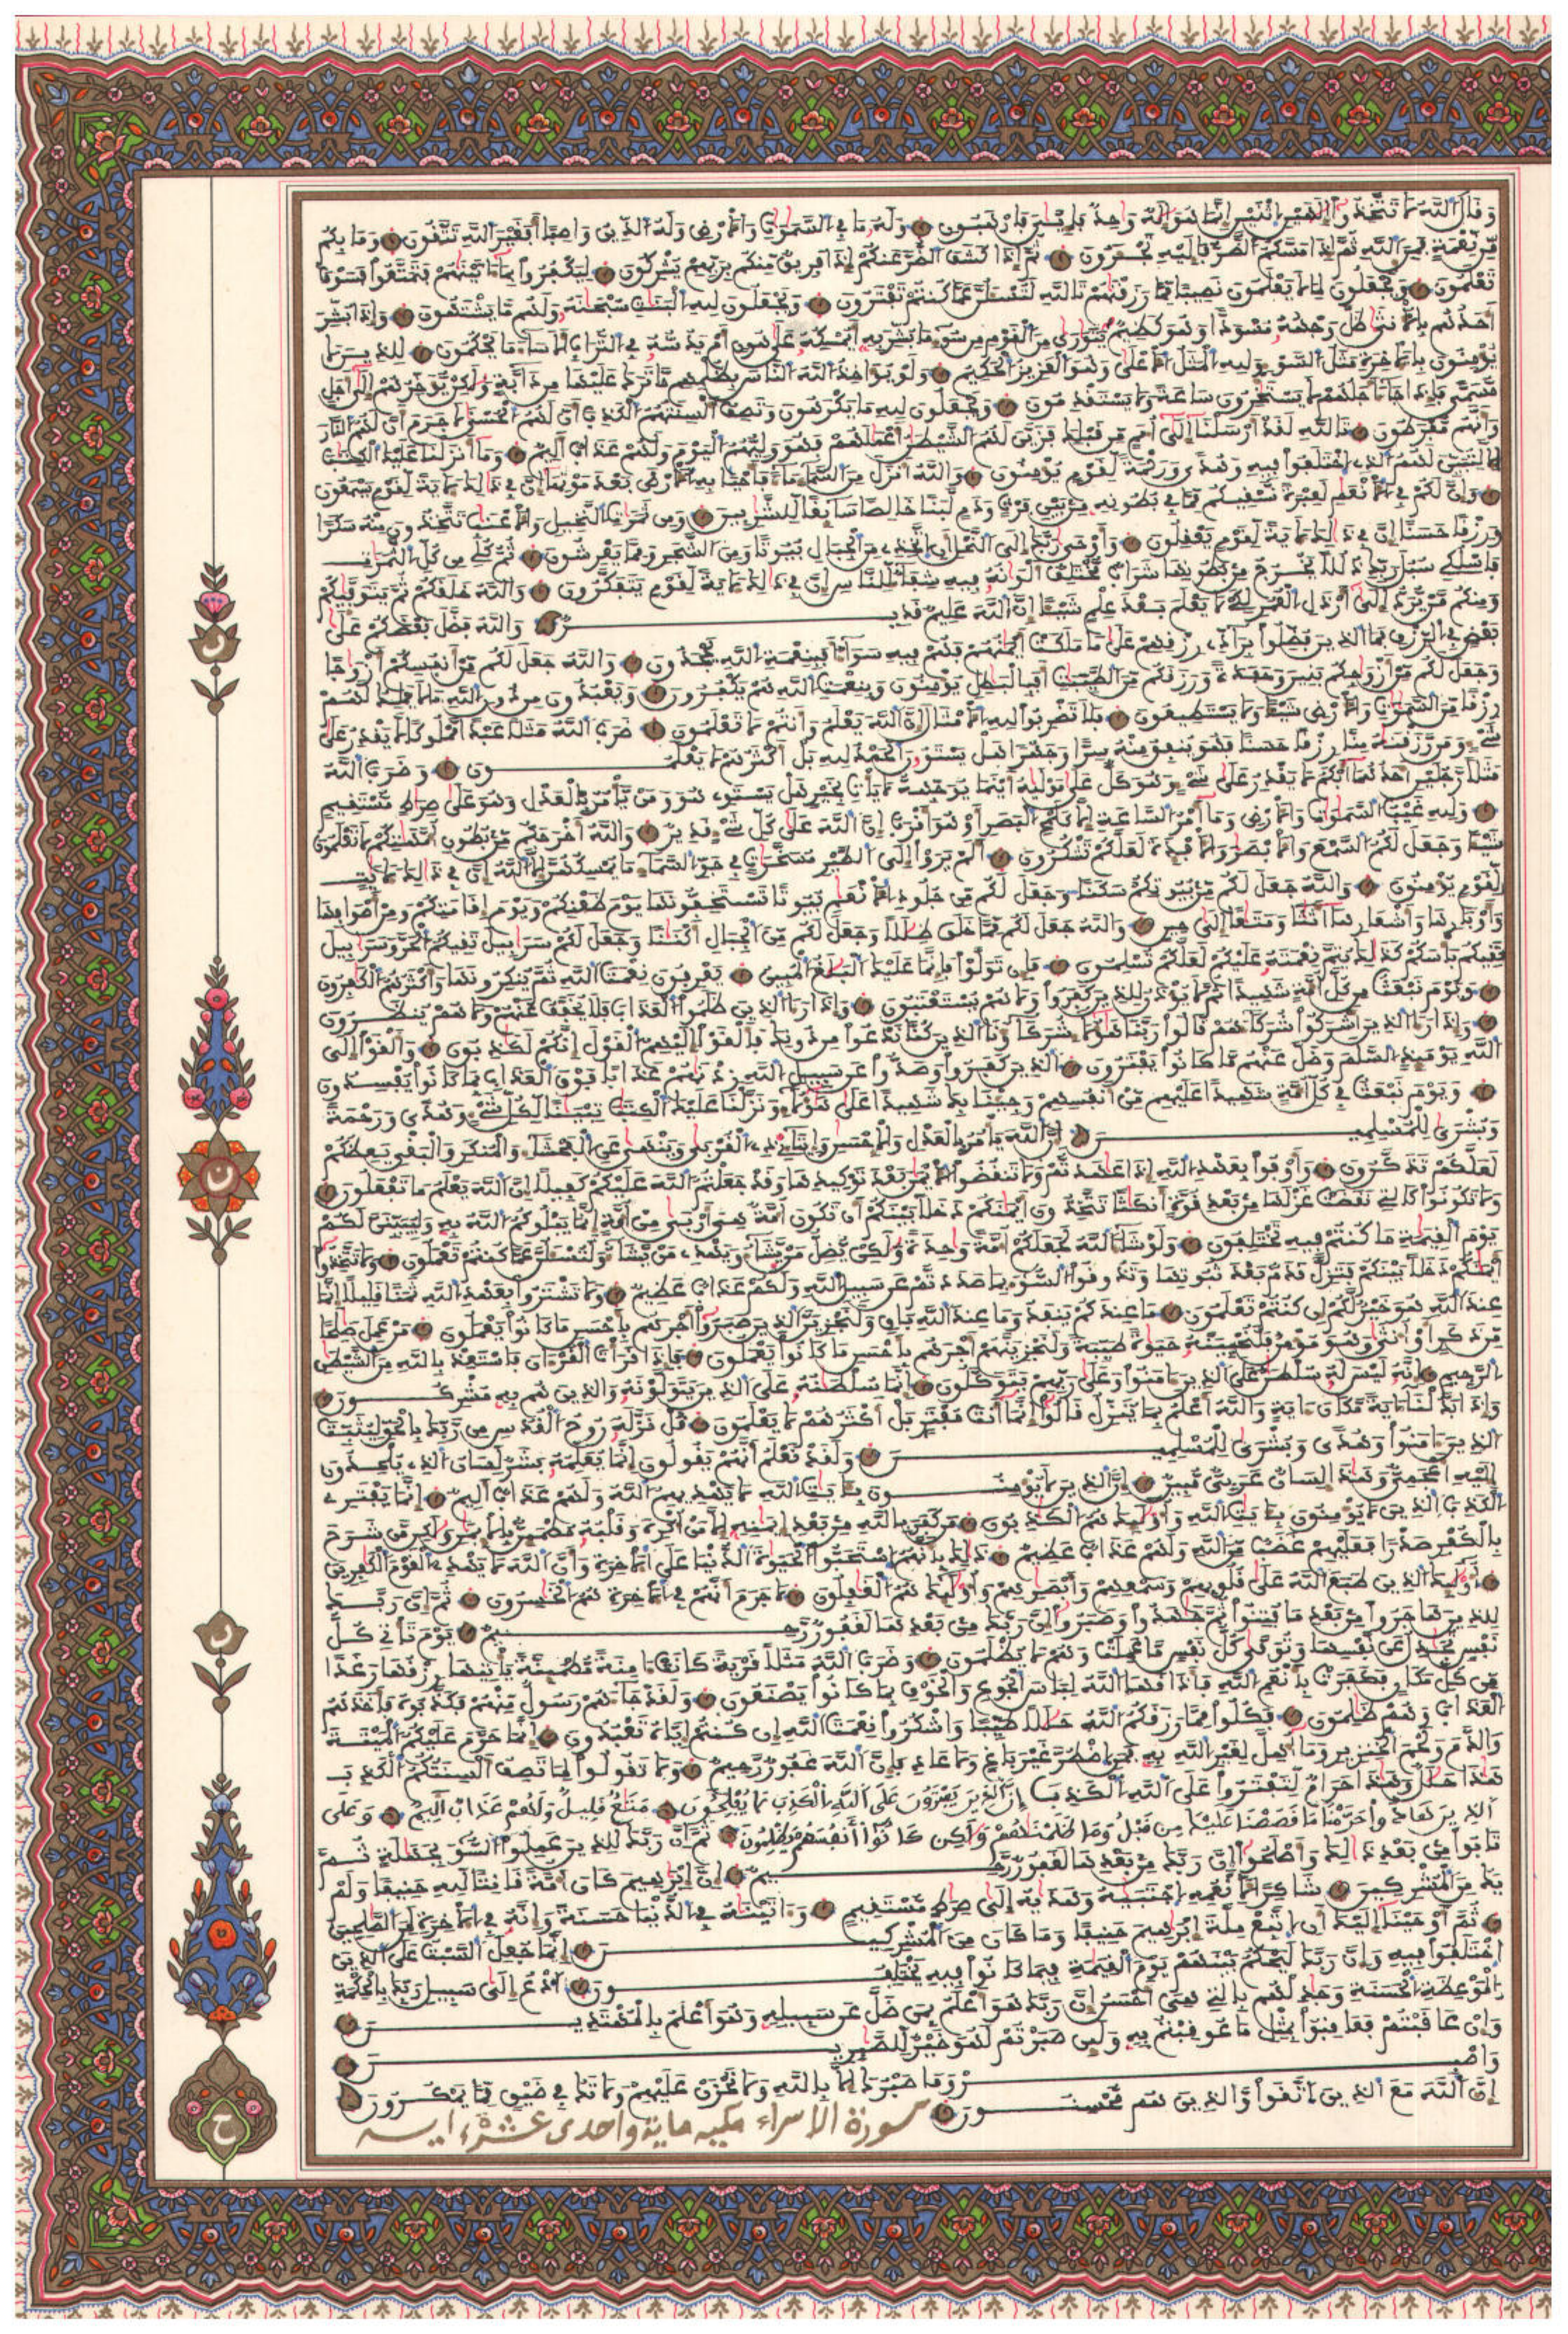 وقال الله لا تتخذوا إلهين اثنين إنما هو إله واحد فإيي فارهبون وله ما في السموت والأرض وله الدين واصبا أفغير الله تتقون وما بكم
من نعمة فمن الله ثم إذا مسكم الضر فإليه تجئرون ثم إذا كشف الضر عنكم إذا فريق منكم بربهم يشركون ليكفروا بما ءاتينهم فتمتعوا فسوف
تعلمون ويجعلون لما لا يعلمون نصيبا مما رزقنهم تالله لتسئلن عما كنتم تفترون ويجعلون لله البنت سبحنه ولهم ما يشتهون وإذا بشر
أحدهم بالأنثى ظل وجهه مسودا وهو كظيم يتوارى من القوم من سوء ما بشر به أيمسكه على هون أم يدسه في التراب ألا ساء ما يحكمون للذين لا
يؤمنون بالأخرة مثل السوء ولله المثل الأعلى وهو العزيز الحكيم ولو يؤاخذ الله الناس بظلمهم ما ترك عليها من دابة ولكن يؤخرهم إلى أجل
مسمى فإذا جاء أجلهم لا يستخرون ساعة ولا يستقدمون ويجعلون لله ما يكرهون وتصف ألسنتهم الكذب أن لهم الحسنى لا جرم أن لهم النار
وأنهم مفرطون تالله لقد أرسلنا إلى أمم من قبلك فزين لهم الشيطن أعملهم فهو وليهم اليوم ولهم عذاب أليم وما أنزلنا عليك الكتب
إلا لتبين لهم الذي اختلفوا فيه وهدى ورحمة لقوم يؤمنون والله أنزل من السماء ماء فأحيا به الأرض بعد موتها إن في ذلك لأية لقوم يسمعون
وإن لكم في الأنعم لعبرة نسقيكم مما في بطونه من بين فرث ودم لبنا خالصا سائغا للشربين ومن ثمرت النخيل والأعنب تتخذون منه سكرا
ورزقا حسنا إن في ذلك لأية لقوم يعقلون وأوحى ربك إلى النحل أن اتخذي من الجبال بيوتا ومن الشجر ومما يعرشون ثم كلي من كل الثمرت
فاسلكي سبل ربك ذللا يخرج من بطونها شراب مختلف ألونه فيه شفاء للناس إن في ذلك لأية لقوم يتفكرون والله خلقكم ثم يتوفيكم
ومنكم من يرد إلى أرذل العمر لكي لا يعلم بعد علم شيئا إن الله عليم قدير والله فضل بعضكم على
بعض في الرزق فما الذين فضلوا برادي رزقهم على ما ملكت أيمنهم فهم فيه سواء أفبنعمة الله يجحدون والله جعل لكم من أنفسكم أزوجا
وجعل لكم من أزوجكم بنين وحفدة ورزقكم من الطيبت أفبالبطل يؤمنون وبنعمت الله هم يكفرون ويعبدون من دون الله ما لا يملك لهم
رزقا من السموت والأرض شيئا ولا يستطيعون فلا تضربوا لله الأمثال إن الله يعلم وأنتم لا تعلمون ضرب الله مثلا عبدا مملوكا لا يقدر على
شيء ومن رزقنه منا رزقا حسنا فهو ينفق منه سرا وجهرا هل يستوون الحمد لله بل أكثرهم لا يعلمون وضرب الله
مثلا رجلين أحدهما أبكم لا يقدر على شيء وهو كل على موليه أينما يوجهه لا يأت بخير هل يستوي هو ومن يأمر بالعدل وهو على صرط مستقيم
ولله غيب السموت والأرض وما أمر الساعة إلا كلمح البصر أو هو أقرب إن الله على كل شيء قدير والله أخرجكم من بطون أمهتكم لا تعلمون
شيئا وجعل لكم السمع والأبصر والأفئدة لعلكم تشكرون ألم يروا إلى الطير مسخرت في جو السماء ما يمسكهن إلا الله إن في ذلك لأيت
لقوم يؤمنون والله جعل لكم من بيوتكم سكنا وجعل لكم من جلود الأنعم بيوتا تستخفونها يوم ظعنكم ويوم إقامتكم ومن أصوافها
وأوبارها وأشعارها أثثا ومتعا إلى حين والله جعل لكم مما خلق ظللا وجعل لكم من الجبال أكننا وجعل لكم سربيل تقيكم الحر وسربيل
تقيكم بأسكم كذلك يتم نعمته عليكم لعلكم تسلمون فإن تولوا فإنما عليك البلغ المبين يعرفون نعمت الله ثم ينكرونها وأكثرهم الكفرون
ويوم نبعث من كل أمة شهيدا ثم لا يؤذن للذين كفروا ولا هم يستعتبون وإذا رءا الذين ظلموا العذاب فلا يخفف عنهم ولا هم ينظرون
وإذا رءا الذين أشركوا شركاءهم قالوا ربنا هؤلاء شركاؤنا الذين كنا ندعوا من دونك فألقوا إليهم القول إنكم لكذبون وألقوا إلى
الله يومئذ السلم وضل عنهم ما كانوا يفترون الذين كفروا وصدوا عن سبيل الله زدنهم عذابا فوق العذاب بما كانوا يفسدون
ويوم نبعث في كل أمة شهيدا عليهم من أنفسهم وجئنا بك شهيدا على هؤلاء ونزلنا عليك الكتب تبينا لكل شيء وهدى ورحمة
وبشرى للمسلمين إن الله يأمر بالعدل والإحسن وإيتاءي ذي القربى وينهى عن الفحشاء والمنكر والبغي يعظكم
لعلكم تذكرون وأوفوا بعهد الله إذا عهدتم ولا تنقضوا الأيمن بعد توكيدها وقد جعلتم الله عليكم كفيلا إن الله يعلم ما تفعلون
ولا تكونوا كالتي نقضت غزلها من بعد قوة أنكثا تتخذون أيمنكم دخلا بينكم أن تكون أمة هي أربى من أمة إنما يبلوكم الله به وليبينن لكم
يوم القيمة ما كنتم فيه تختلفون ولو شاء الله لجعلكم أمة وحدة ولكن يضل من يشاء ويهدي من يشاء ولتسئلن عما كنتم تعملون ولا تتخذوا
أيمنكم دخلا بينكم فتزل قدم بعد ثبوتها وتذوقوا السوء بما صددتم عن سبيل الله ولكم عذاب عظيم ولا تشتروا بعهد الله ثمنا قليلا إنما
عند الله هو خير لكم إن كنتم تعلمون ما عندكم ينفد وما عند الله باق وليجزين الذين صبروا أجرهم بأحسن ما كانوا يعملون من عمل صلحا
من ذكر أو أنثى وهو مؤمن فلنحيينه حيوة طيبة ولنجزينهم أجرهم بأحسن ما كانوا يعملون فإذا قرأت القرءان فاستعذ بالله من الشيطن
الرجيم إنه ليس له سلطن على الذين ءامنوا وعلى ربهم يتوكلون إنما سلطنه على الذين يتولونه والذين هم به مشركون
وإذا بدلنا ءاية مكان ءاية والله أعلم بما ينزل قالوا إنما أنت مفتر بل أكثرهم لا يعلمون قل نزله روح القدس من ربك بالحق ليثبت
الذين ءامنوا وهدى وبشرى للمسلمين ولقد نعلم أنهم يقولون إنما يعلمه بشر لسان الذي يلحدون
إليه أعجمي وهذا لسان عربي مبين إن الذين لا يؤمنون بئايت الله لا يهديهم الله ولهم عذاب أليم إنما يفتري
الكذب الذين لا يؤمنون بئايت الله وأولئك هم الكذبون من كفر بالله من بعد إيمنه إلا من أكره وقلبه مطمئن بالإيمن ولكن من شرح
بالكفر صدرا فعليهم غضب من الله ولهم عذاب عظيم ذلك بأنهم استحبوا الحيوة الدنيا على الأخرة وأن الله لا يهدي القوم الكفرين
أولئك الذين طبع الله على قلوبهم وسمعهم وأبصرهم وأولئك هم الغفلون لا جرم أنهم في الأخرة هم الخسرون ثم إن ربك
للذين هاجروا من بعد ما فتنوا ثم جهدوا وصبروا إن ربك من بعدها لغفور رحيم يوم تأتي كل
نفس تجدل عن نفسها وتوفى كل نفس ما عملت وهم لا يظلمون وضرب الله مثلا قرية كانت ءامنة مطمئنة يأتيها رزقها رغدا
من كل مكان فكفرت بأنعم الله فأذقها الله لباس الجوع والخوف بما كانوا يصنعون ولقد جاءهم رسول منهم فكذبوه فأخذهم
العذاب وهم ظلمون فكلوا مما رزقكم الله حللا طيبا واشكروا نعمت الله إن كنتم إياه تعبدون إنما حرم عليكم الميتة
والدم ولحم الخنزير وما أهل لغير الله به فمن اضطر غير باغ ولا عاد فإن الله غفور رحيم ولا تقولوا لما تصف ألسنتكم الكذب
هذا حلل وهذا حرام لتفتروا على الله الكذب إن الذين يفترون على الله الكذب لا يفلحون متع قليل ولهم عذاب أليم وعلى
الذين هادوا حرمنا ما قصصنا عليك من قبل وما ظلمنهم ولكن كانوا أنفسهم يظلمون ثم إن ربك للذين عملوا السوء بجهلة ثم
تابوا من بعد ذلك وأصلحوا إن ربك من بعدها لغفور رحيم إن إبرهيم كان أمة قانتا لله حنيفا ولم
يك من المشركين شاكرا لأنعمه اجتبيه وهديه إلى صرط مستقيم وءاتينه في الدنيا حسنة وإنه في الأخرة لمن الصلحين
ثم أوحينا إليك أن اتبع ملة إبرهيم حنيفا وما كان من المشركين إنما جعل السبت على الذين
اختلفوا فيه وإن ربك ليحكم بينهم يوم القيمة فيما كانوا فيه يختلفون ادع إلى سبيل ربك بالحكمة
والموعظة الحسنة وجدلهم بالتي هي أحسن إن ربك هو أعلم بمن ضل عن سبيله وهو أعلم بالمهتدين
وإن عاقبتم فعاقبوا بمثل ما عوقبتم به ولئن صبرتم لهو خير للصبرين
واصبر وما صبرك إلا بالله ولا تحزن عليهم ولا تك في ضيق مما يمكرون
إن الله مع الذين اتقوا والذين هم محسنون
سورة الاسراء مكيه ماية واحدى عشرة ايه